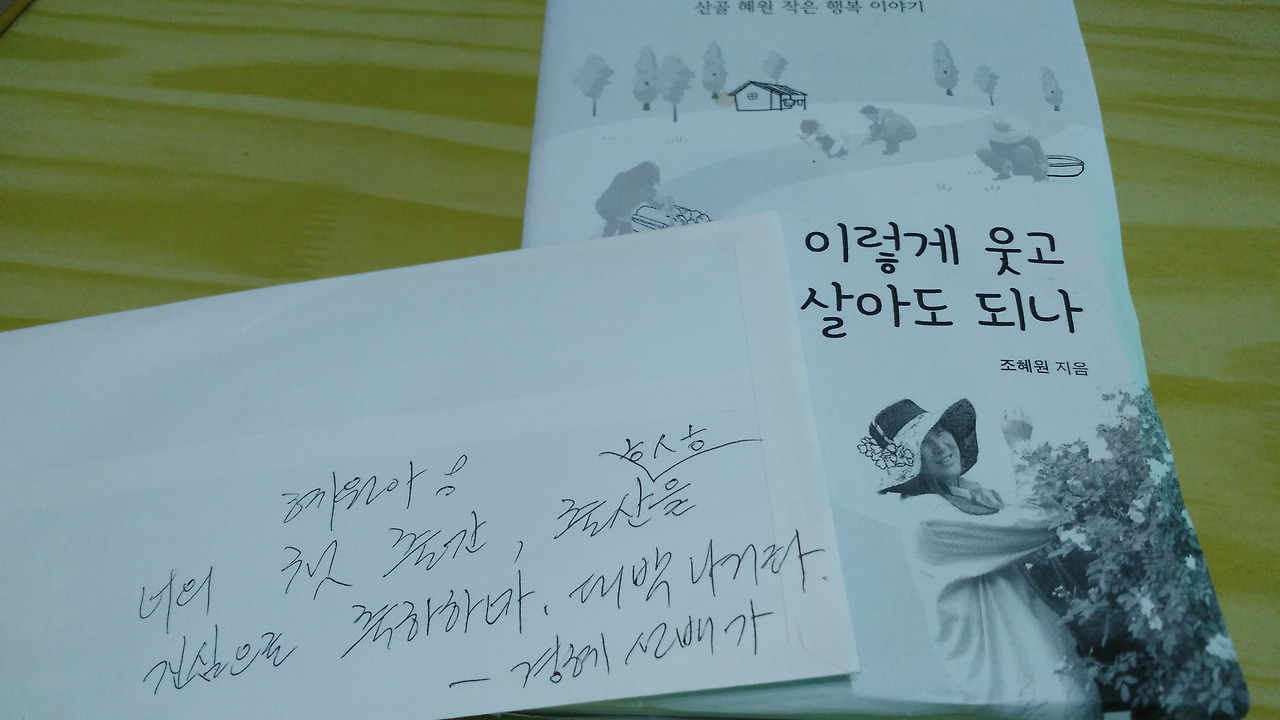 산골 혜원 작은 행복 이야기
이렇게 웃고
살아도 되나
조혜원 지음
혜원아!
너의 첫 출간, 출산을
진심으로 축하하마. 대박 나거라.
- 경혜 선배가